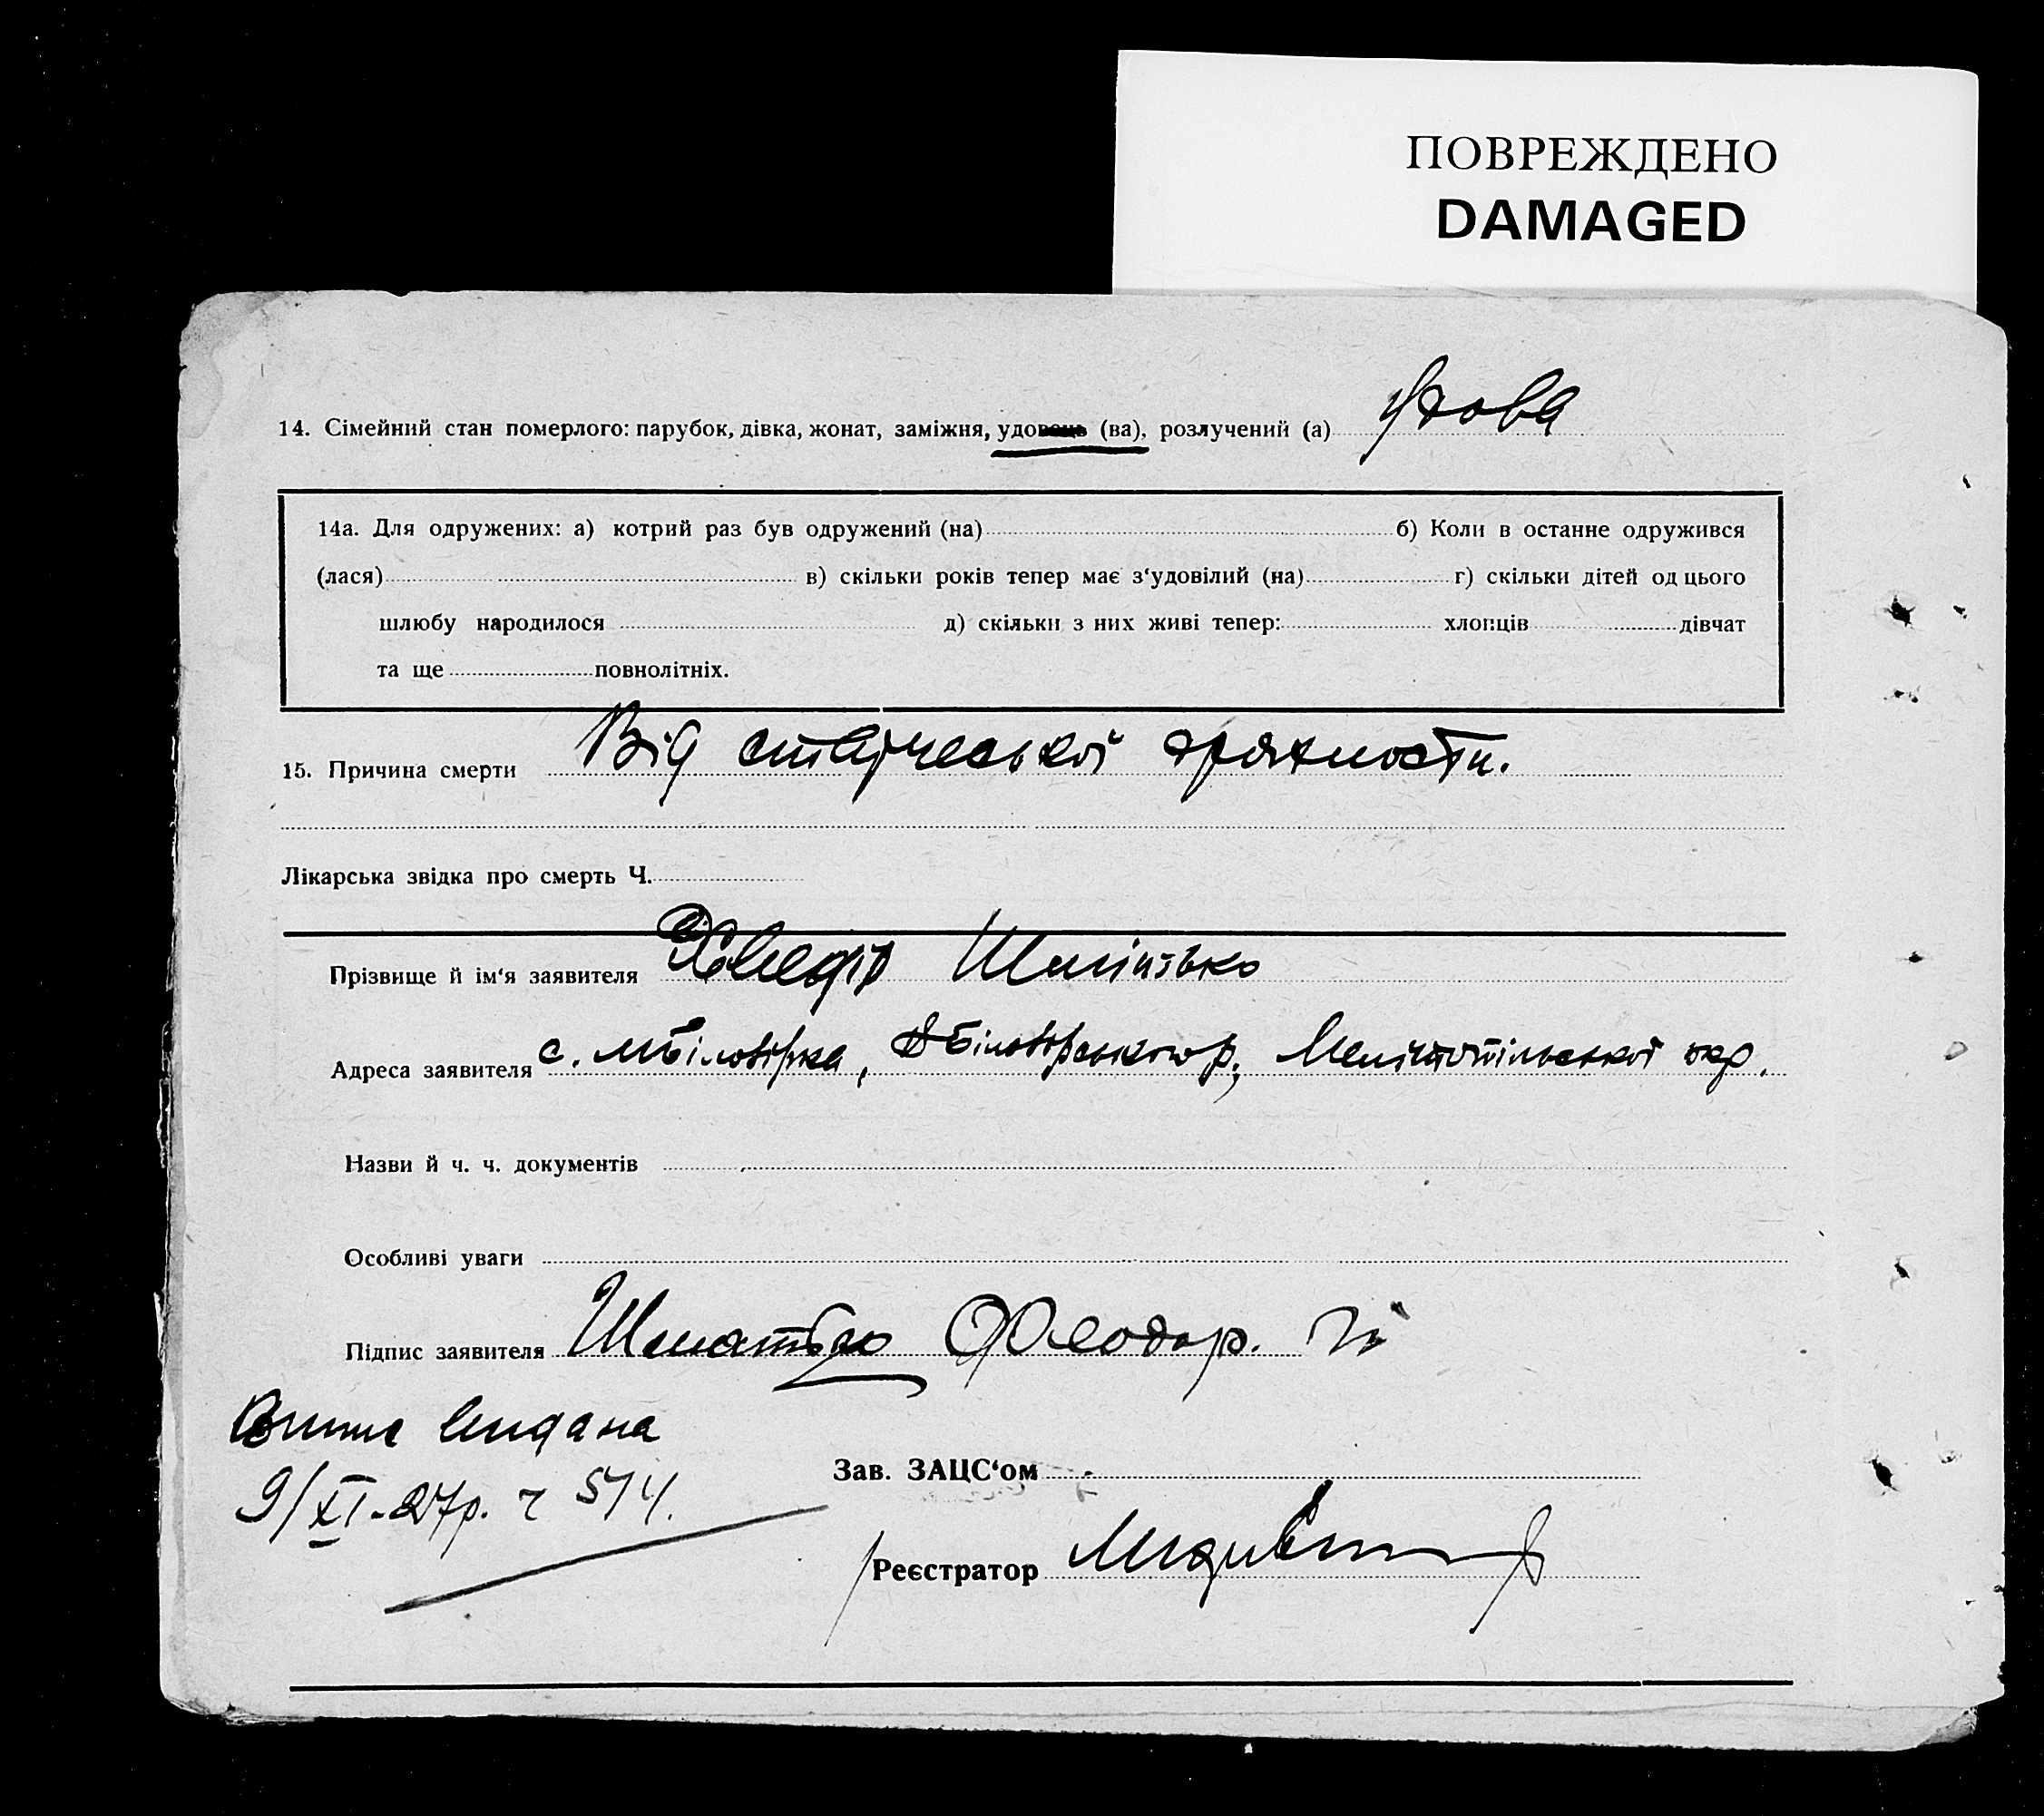 ПОВРЕЖДЕНО
DAMAGED
14. Сімейний стан померлого: парубок, дівка, жонат, заміжня, удовець (ва), розлучений (а) Удова
14а. Для одружених: а) котрий раз був одружений (на) б) Коли в останне одружився
(лася) в) скільки років тепер має з'удовілий (на) г) скільки дітей од цього
шлюбу народилося д) скільки з них живі тепер: хлопців дівчат
та ще повнолітніх.
15. Причина смерти Від старческої дряхности.
Лікарська звідка про смерть Ч.
Прізвище й ім'я заявителя
Адреса заявителя с. мБіловірка, Мелітопільської окр.
Назви й ч. ч. документів
Особливі уваги
Підпис заявителя Феодор.
Випис видана
9/XI-27р. ч 574.
Зав. ЗАЦС'ом
Реєстратор